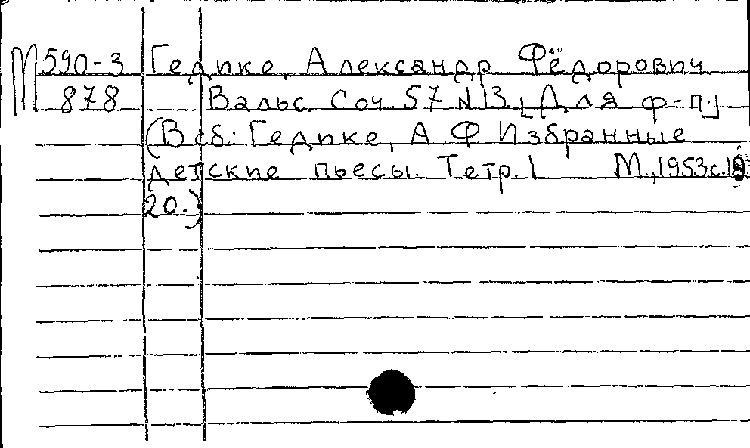 М 590-3 Гедике, Александр Фёдорович
878 Вальс. Соч. 57 N 13. [Для ф-п.]
(В сб.: Гедике, А. Ф. Избранные
детские пьесы. Тетр. 1 М., 1953 с. 19
20.)